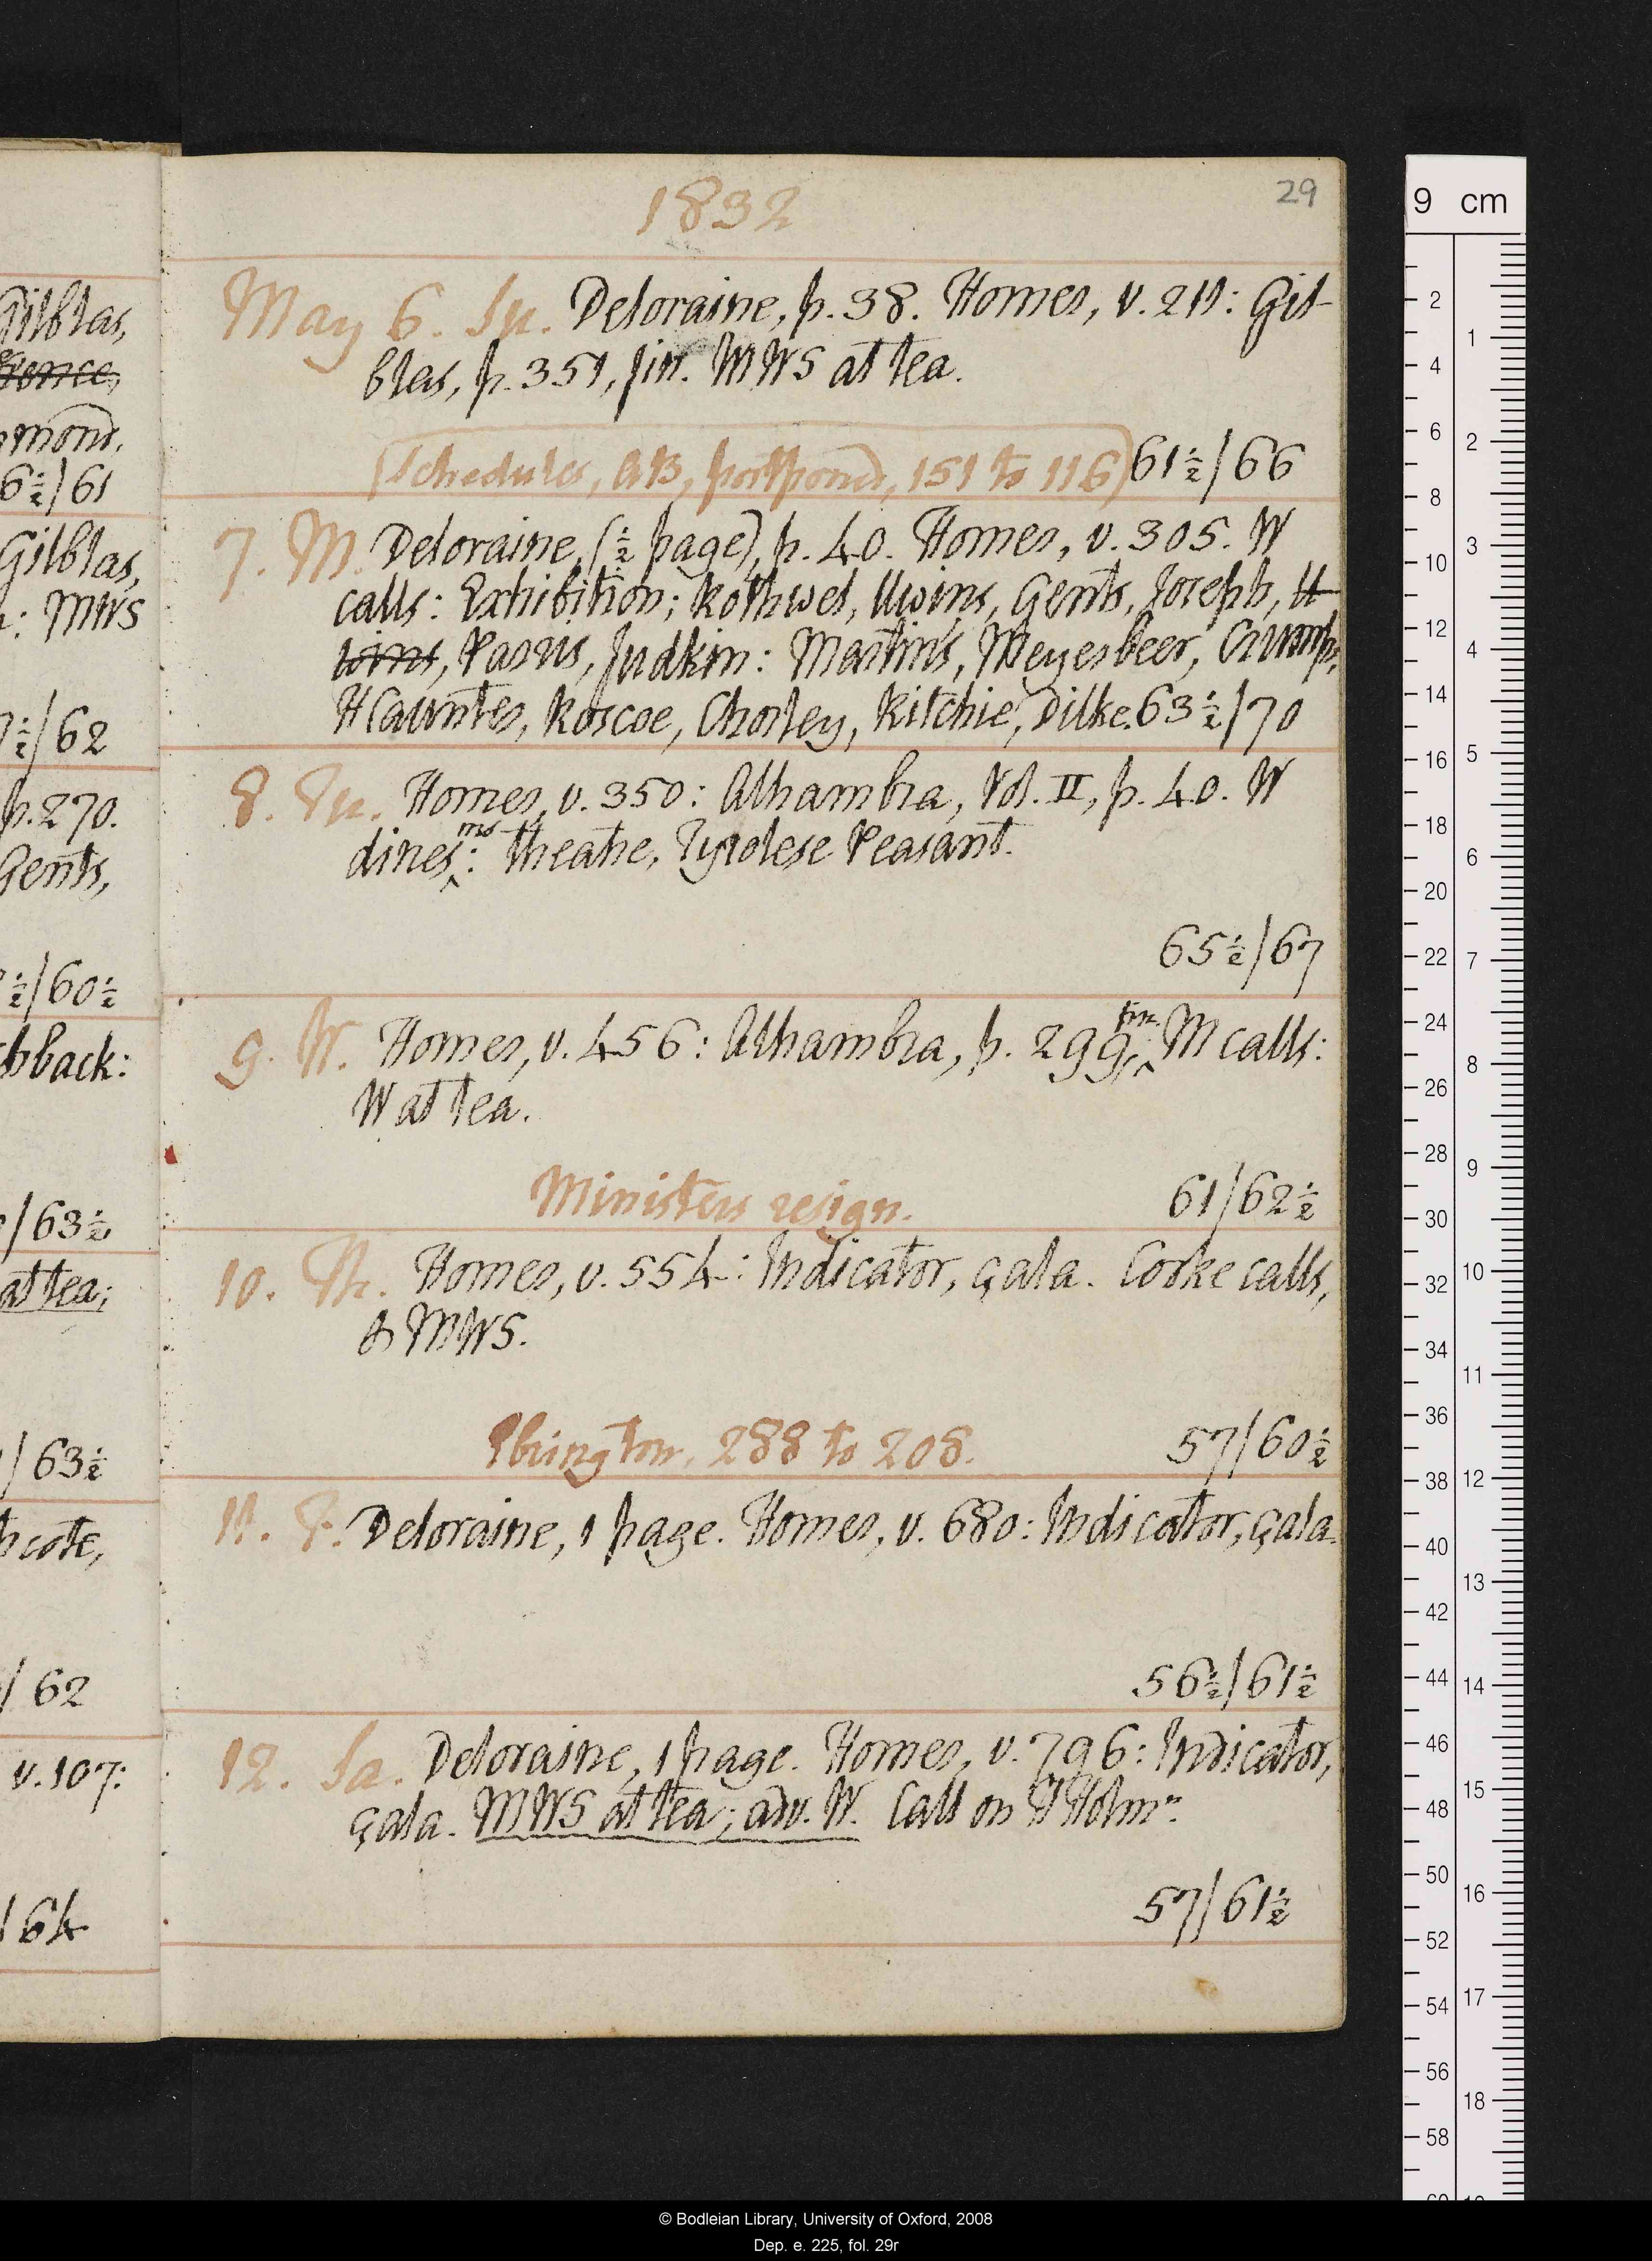 1832
29
May 6. Su. Deloraine, p. 38. Homer, v. 211: Gil-
blas, p. 351, fin. MWS at tea.
(Schedules, AB, postpond, 151 to 116) 61½/66
7. M. Deloraine, (½ page), p. 40. Homer, v. 305. W
calls: Exhibition; Rothwel, Uwins, Gents, Joseph, U
wins, Parris, Judkin: Martin's, Meyerbeer, Crump,
H Caunter, Roscoe, Chorley, Ritchie, Dilke. 63½/70
8. Tu. Homer, v. 350: Alhambra, Vol. II, p. 40. W
dines: theatre, Tyrolese Peasant.
65½/67
9. W. Homer, v. 456: Alhambra, p. 299, fin. M calls:
W at tea.
Ministers resign. 61/62½
10. Th. Homer, v. 554: Indicator, çala. Corke calls,
& MWS.
Ebrington, 288 to 208. 57/60½
11. F. Deloraine, 1 page. Homer, v. 680: Indicator, çala.
56½/61½
12. Sa. Deloraine, 1 page. Homer, v. 796: Indicator,
çala. MWS at tea; adv. W. Call on H Holmn.
57/61½
Gilblas,
mond.
6½/61
Gilblas,
: MWS
½/62
p. 270.
Gents,
½/60½
hback:
/63½
at tea;
/63½
cote,
/62
v. 107:
/64
9 cm
© Bodleian Library, University of Oxford, 2008
Dep. e. 225, fol. 29r